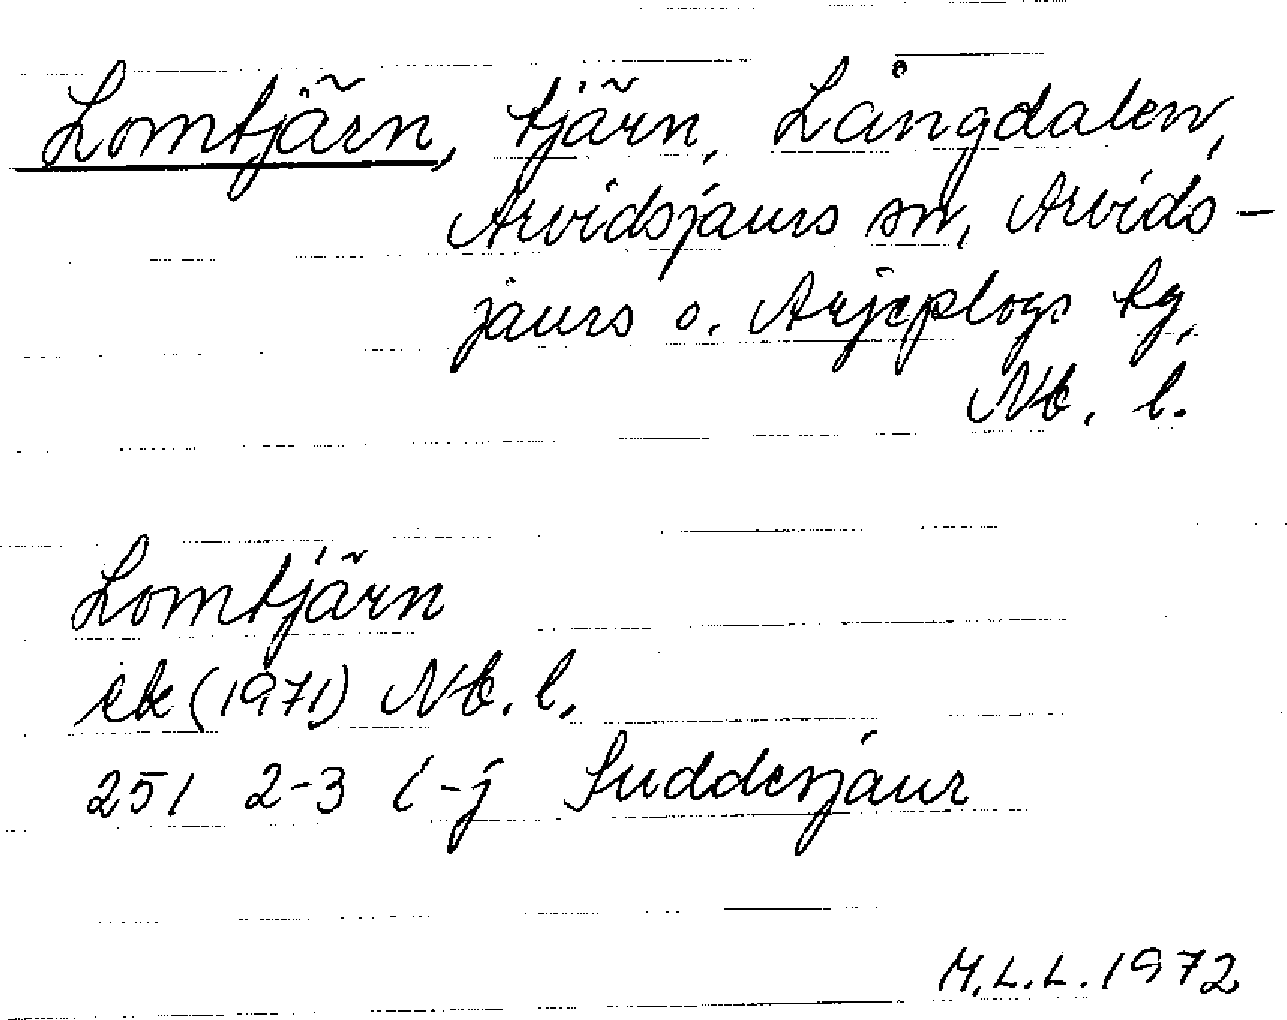 Lomtjärn, tjärn, Långdalen,
Arvidsjaurs sn, Arvids-
jaurs o. Arjeplogs tg,
Nb. l.
Lomtjärn
ek (1971) Nb. l.
251 2-3 i-j Suddesjaur
M.L.L. 1972